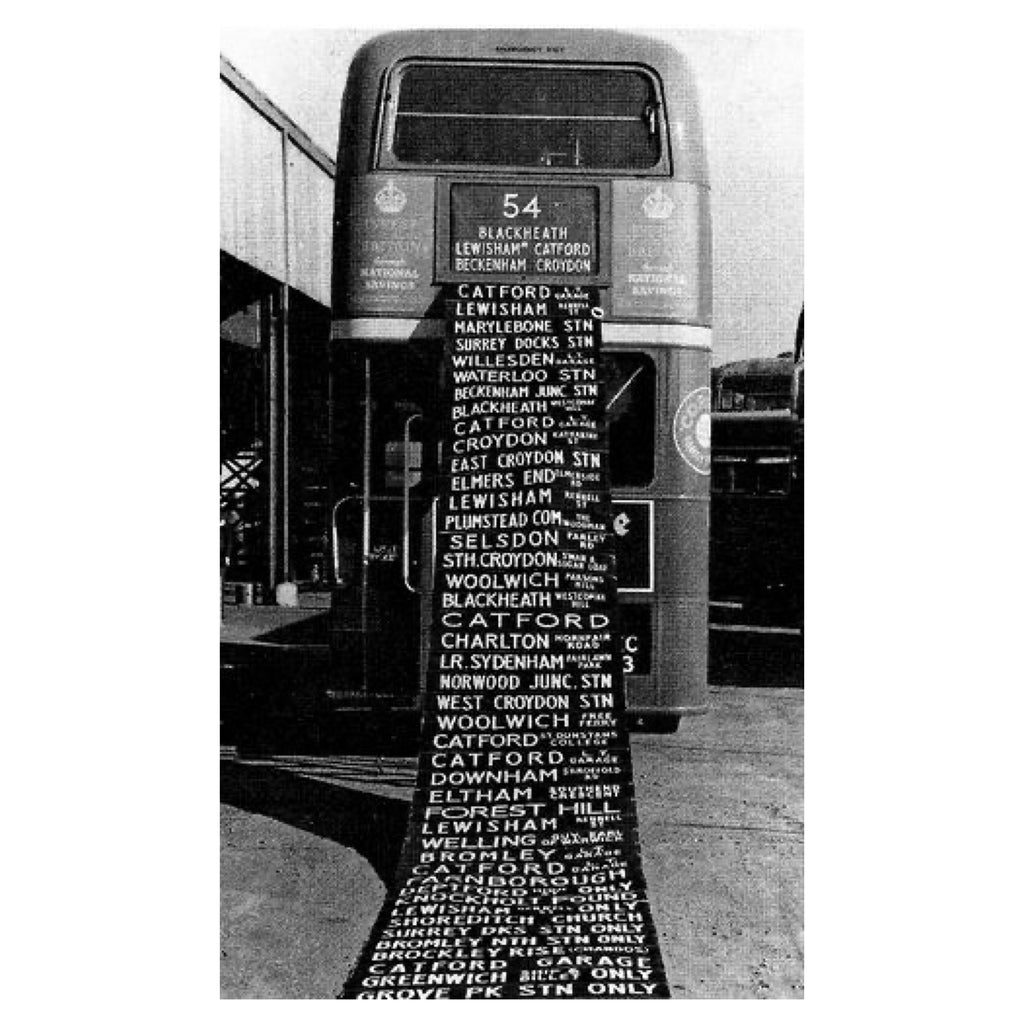 EMERGENCY EXIT
54
BLACKHEATH
LEWISHAM CATFORD
BECKENHAM CROYDON
BRITAIN
through
NATIONAL
SAVINGS
BRITAIN
through
NATIONAL
SAVINGS
CATFORD L.T. GARAGE
LEWISHAM RENNELL ST
MARYLEBONE STN
SURREY DOCKS STN
WILLESDEN L.T. GARAGE
WATERLOO STN
BECKENHAM JUNC. STN
BLACKHEATH WESTCOMBE HILL
CATFORD L.T. GARAGE
CROYDON KATHARINE ST
EAST CROYDON STN
ELMERS END ELMERSIDE RD
LEWISHAM RENNELL ST
PLUMSTEAD COM. THE WOODMAN
SELSDON FARLEY RD
STH. CROYDON SWAN & SUGAR LOAF
WOOLWICH PARSONS HILL
BLACKHEATH WESTCOMBE HILL
CATFORD
CHARLTON HORNFAIR ROAD
LR. SYDENHAM FAIRLAWN PARK
NORWOOD JUNC. STN
WEST CROYDON STN
WOOLWICH FREE FERRY
CATFORD ST DUNSTANS COLLEGE
CATFORD L.T. GARAGE
DOWNHAM
ELTHAM SOUTHEND CRESCENT
FOREST HILL
LEWISHAM RENNELL ST
WELLING
BROMLEY L.T. GARAGE
CATFORD L.T. GARAGE
FARNBOROUGH
DEPTFORD ONLY
KNOCKHOLT POUND
LEWISHAM RENNELL ONLY
SHOREDITCH CHURCH
SURREY DKS STN ONLY
BROMLEY NTH STN ONLY
BROCKLEY RISE (CHANDOS)
CATFORD GARAGE
GREENWICH ONLY
GROVE PK STN ONLY